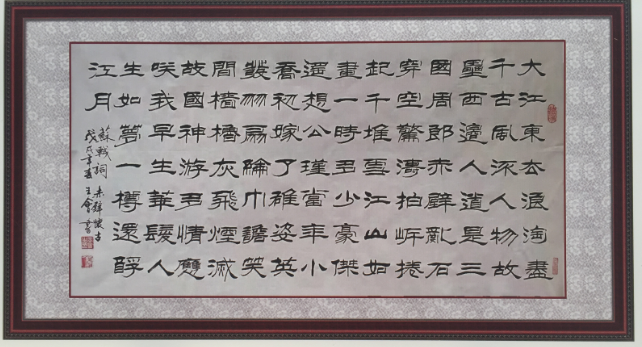 大江東去浪淘盡
千古風流人物故
壘西邊人道是三
國周郎赤壁亂石
穿空驚濤拍岸捲
起千堆雪江山如
畫一時多少豪傑
遥想公瑾當年小
喬初嫁了雄姿英
發羽扇綸巾談笑
間檣櫓灰飛煙滅
故國神游多情應
笑我早生華髮人
生如夢一樽還酹
江月
蘇軾詞赤壁懷古
年春王會書